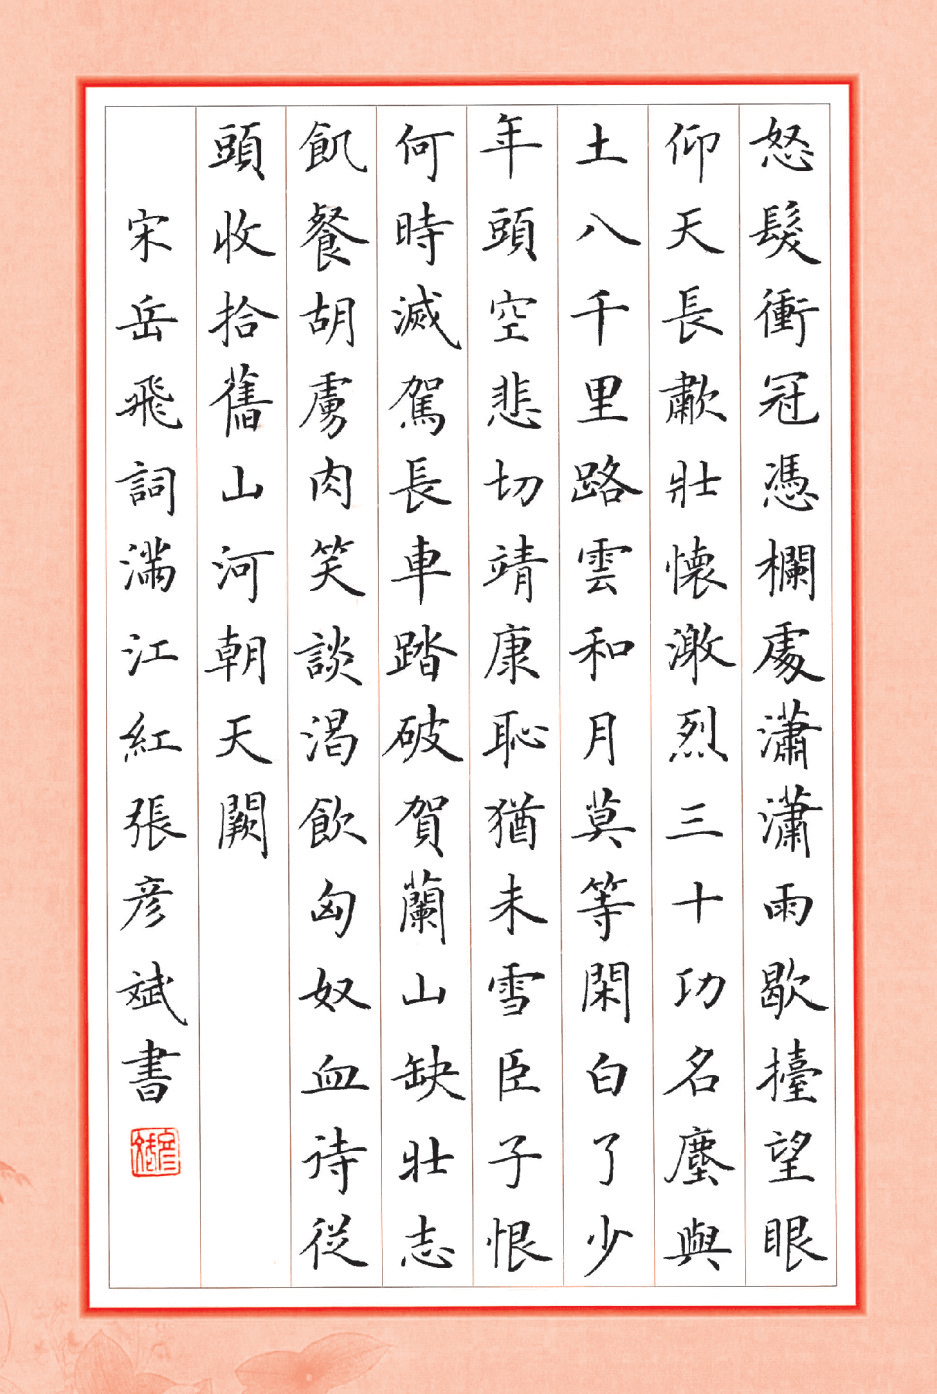 怒髮衝冠憑欄處瀟瀟雨歇擡望眼
仰天長歗壯懷激烈三十功名塵與
土八千里路雲和月莫等閑白了少
年頭空悲切靖康恥猶未雪臣子恨
何時滅駕長車踏破賀蘭山缺壯志
飢餐胡虜肉笑談渴飲匈奴血待從
頭收拾舊山河朝天闕
宋岳飛詞滿江紅張彥斌書
彥斌